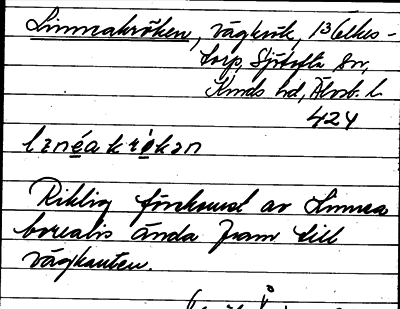 Linneakröken, vägkrök, 
torp, Sjötofta sn,
Kinds hd, Älvsb. l.
424
Riklig förekomst av Linnea
borealis ända fram till
vägkanten.